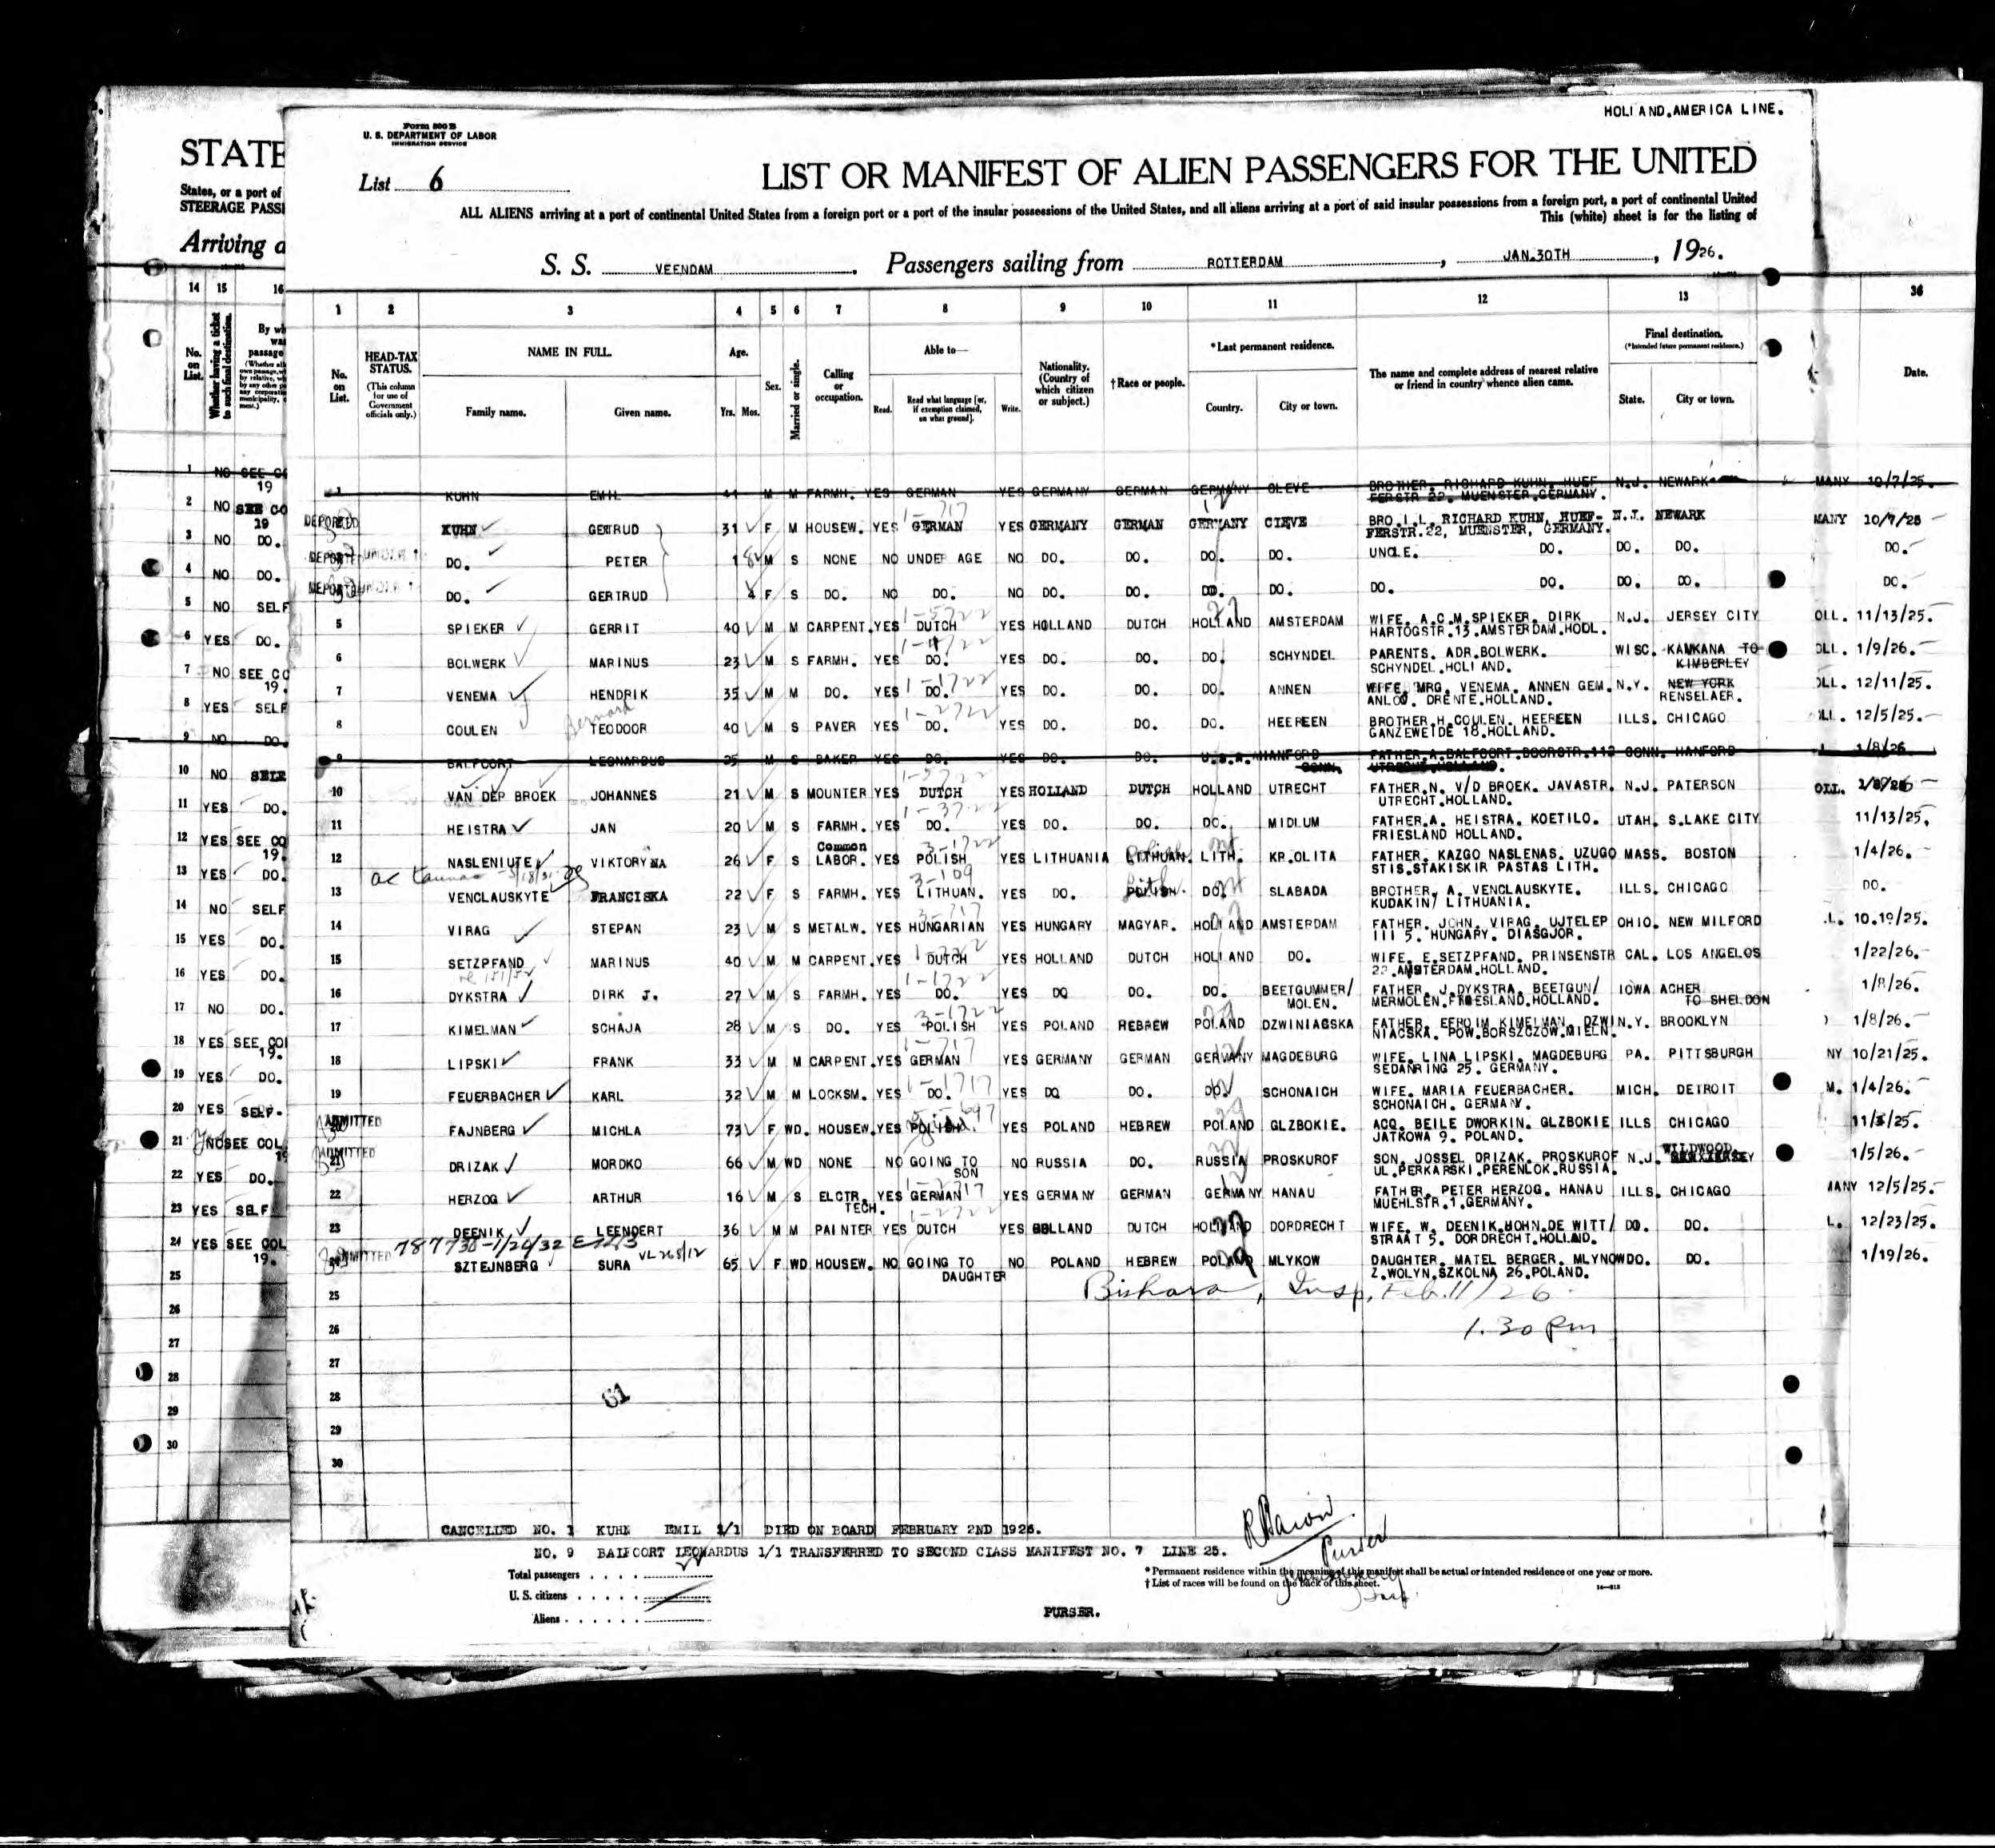 HOLLAND.AMERICA LINE.
Form 500 B
U. S. DEPARTMENT OF LABOR
IMMIGRATION SERVICE
STATE
List 6
LIST OR MANIFEST OF ALIEN PASSENGERS FOR THE UNITED
States, or a port of
STEERAGE PASS
ALL ALIENS arriving at a port of continental United States from a foreign port or a port of the insular possessions of the United States, and all aliens arriving at a port of said insular possessions from a foreign port, a port of continental United
This (white) sheet is for the listing of
Arriving a
S. S. VEENDAM. Passengers sailing from ROTTERDAM, JAN.30TH, 1926.
14 15 16 1 2 3 4 5 6 7 8 9 10 11 12 13 36
No. on List.
Whether having a ticket to such final destination.
No. on List.
HEAD-TAX STATUS.
(This column for use of Government officials only.)
NAME IN FULL.
Family name. Given name.
Age.
Yrs. Mos.
Sex.
Married or single.
Calling or occupation.
Able to—
Read. Read what language [or, if exemption claimed, on what ground]. Write.
Nationality. (Country of which citizen or subject.)
†Race or people.
*Last permanent residence.
Country. City or town.
The name and complete address of nearest relative or friend in country whence alien came.
Final destination.
(*Intended future permanent residence.)
State. City or town.
Date.
1 KUHN EMIL M M FARMH. YES GERMAN YES GERMANY GERMAN GERMANY CLEVE BROTHER. RICHARD KUHN. HUEF N.J. NEWARK MANY 10/7/25.
FERSTR 22. MUENSTER.GERMANY.
DEPORTED KUHN GERTRUD 31 F M HOUSEW. YES GERMAN YES GERMANY GERMAN GERMANY CLEVE BRO.I.L. RICHARD KUHN, HUEF- N.J. NEWARK MANY 10/7/25
FERSTR.22, MUENSTER, GERMANY.
DO. PETER 1 M S NONE NO UNDER AGE NO DO. DO. DO. DO. UNCLE. DO. DO. DO. DO.
DO. GERTRUD F S DO. NO DO. NO DO. DO. DO. DO. DO. DO. DO. DO. DO.
5 SPIEKER GERRIT 40 M M CARPENT. YES DUTCH YES HOLLAND DUTCH HOLLAND AMSTERDAM WIFE. A.C.M.SPIEKER. DIRK N.J. JERSEY CITY OLL. 11/13/25.
HARTOGSTR.13.AMSTERDAM.HOOL.
6 BOLWERK MARINUS 23 M S FARMH. YES DO. YES DO. DO. DO. SCHYNDEL PARENTS. ADR.BOLWERK. WISC. KAUKANA TO OLL. 1/9/26.
SCHYNDEL.HOLLAND. KIMBERLEY
7 VENEMA HENDRIK 35 M M DO. YES DO. YES DO. DO. DO. ANNEN WIFE. MRG. VENEMA. ANNEN GEM. N.Y. NEW YORK OLL. 12/11/25.
ANLOO. DRENTE.HOLLAND. RENSELAER.
Bernard
8 COULEN TEODOOR 40 M S PAVER YES DO. YES DO. DO. DO. HEEREEN BROTHER.H.COULEN. HEEREEN ILLS. CHICAGO 12/5/25.
GANZEWEIDE 18.HOLLAND.
9 BALFOORT LEONARDUS 25 M S BAKER YES DO. YES DO. DO. U.S.A. HANFORD CONN. FATHER.A.BALFOORT.DOORSTR.112 CONN. HANFORD 1/8/26
UTRECHT.HOLLAND.
10 VAN DER BROEK JOHANNES 21 M S MOUNTER YES DUTCH YES HOLLAND DUTCH HOLLAND UTRECHT FATHER.N. V/D BROEK. JAVASTR. N.J. PATERSON OLL.
UTRECHT.HOLLAND.
11 HEISTRA JAN 20 M S FARMH. YES DO. YES DO. DO. DO. MIDLUM FATHER.A. HEISTRA. KOETILO. UTAH. S.LAKE CITY 11/13/25.
FRIESLAND HOLLAND.
12 NASLENIUTE VIKTORYNA 26 F S Common LABOR. YES POLISH YES LITHUANIA LITHUAN. LITH. KR.OLITA FATHER. KAZGO NASLENAS. UZUGO MASS. BOSTON 1/4/26.
STIS.STAKISKIR PASTAS LITH.
13 VENCLAUSKYTE FRANCISKA 22 F S FARMH. YES LITHUAN. YES DO. POLISH. DO. SLABADA BROTHER. A. VENCLAUSKYTE. ILLS. CHICAGO DO.
KUDAKIN/ LITHUANIA.
14 VIRAG STEPAN 23 M S METALW. YES HUNGARIAN YES HUNGARY MAGYAR. HOLLAND AMSTERDAM FATHER. JOHN. VIRAG. UJTELEP OHIO. NEW MILFORD L. 10.19/25.
III 5. HUNGARY. DIASGJOR.
15 SETZPFAND MARINUS 40 M M CARPENT. YES DUTCH YES HOLLAND DUTCH HOLLAND DO. WIFE. E.SETZPFAND. PRINSENSTR CAL. LOS ANGELOS 1/22/26.
22.AMSTERDAM.HOLLAND.
16 DYKSTRA DIRK J. 27 M S FARMH. YES DO. YES DO DO. DO. BEETGUMMER/ MOLEN. FATHER. J.DYKSTRA. BEETGUN/ IOWA ACHER 1/8/26.
MERMOLEN.FRIESLAND.HOLLAND. TO SHELDON
17 KIMELMAN SCHAJA 28 M S DO. YES POLISH YES POLAND HEBREW POLAND DZWINIACSKA FATHER. EFROIM KIMELMAN. DZWI N.Y. BROOKLYN 1/8/26.
NIACSKA. POW.BORSZCZOW.MIELN.
18 LIPSKI FRANK 33 M M CARPENT. YES GERMAN YES GERMANY GERMAN GERMANY MAGDEBURG WIFE. LINA LIPSKI. MAGDEBURG PA. PITTSBURGH NY 10/21/25.
SEDANRING 25. GERMANY.
19 FEUERBACHER KARL 32 M M LOCKSM. YES DO. YES DO DO. DO. SCHONAICH WIFE. MARIA FEUERBACHER. MICH. DETROIT M. 1/4/26.
SCHONAICH. GERMANY.
ADMITTED FAJNBERG MICHLA 73 F WD. HOUSEW. YES POLISH. YES POLAND HEBREW POLAND GLZBOKIE. ACQ. BEILE DWORKIN. GLZBOKIE ILLS CHICAGO
JATKOWA 9. POLAND.
ADMITTED 21 DRIZAK MORDKO 66 M WD NONE NO GOING TO SON NO RUSSIA DO. RUSSIA PROSKUROF SON. JOSSEL DRIZAK. PROSKUROF N.J. WILDWOOD. 1/5/26.
UL.PERKARSKI.PERENLOK.RUSSIA.
22 HERZOG ARTHUR 16 M S ELCTR. TECH. YES GERMAN YES GERMANY GERMAN GERMANY HANAU FATHER. PETER HERZOG. HANAU ILLS. CHICAGO MANY 12/5/25.
MUEHLSTR.1.GERMANY.
23 DEENIK LEENDERT 36 M M PAINTER YES DUTCH YES HOLLAND DUTCH HOLLAND DORDRECHT WIFE. W. DEENIK.BOHN.DE WITT/ DO. DO. L. 12/23/25.
STRAAT 5. DORDRECHT.HOLLAND.
ADMITTED SZTEJNBERG SURA 65 F WD HOUSEW. NO GOING TO DAUGHTER NO POLAND HEBREW POLAND MLYKOW DAUGHTER. MATEL BERGER. MLYNOW DO. DO. 1/19/26.
Z.WOLYN.SZKOLNA 26.POLAND.
25 Bishara, Insp, Feb. 11/26
26 1.30 Pm
27
28 61
29
30
CANCELLED NO. 1 KUHN EMIL 1/1 DIED ON BOARD FEBRUARY 2ND 1926.
NO. 9 BALFOORT LEONARDUS 1/1 TRANSFERRED TO SECOND CLASS MANIFEST NO. 7 LINE 25.
Purser
Total passengers
U. S. citizens
Aliens
* Permanent residence within the meaning of this manifest shall be actual or intended residence of one year or more.
† List of races will be found on the back of this sheet.
PURSER.